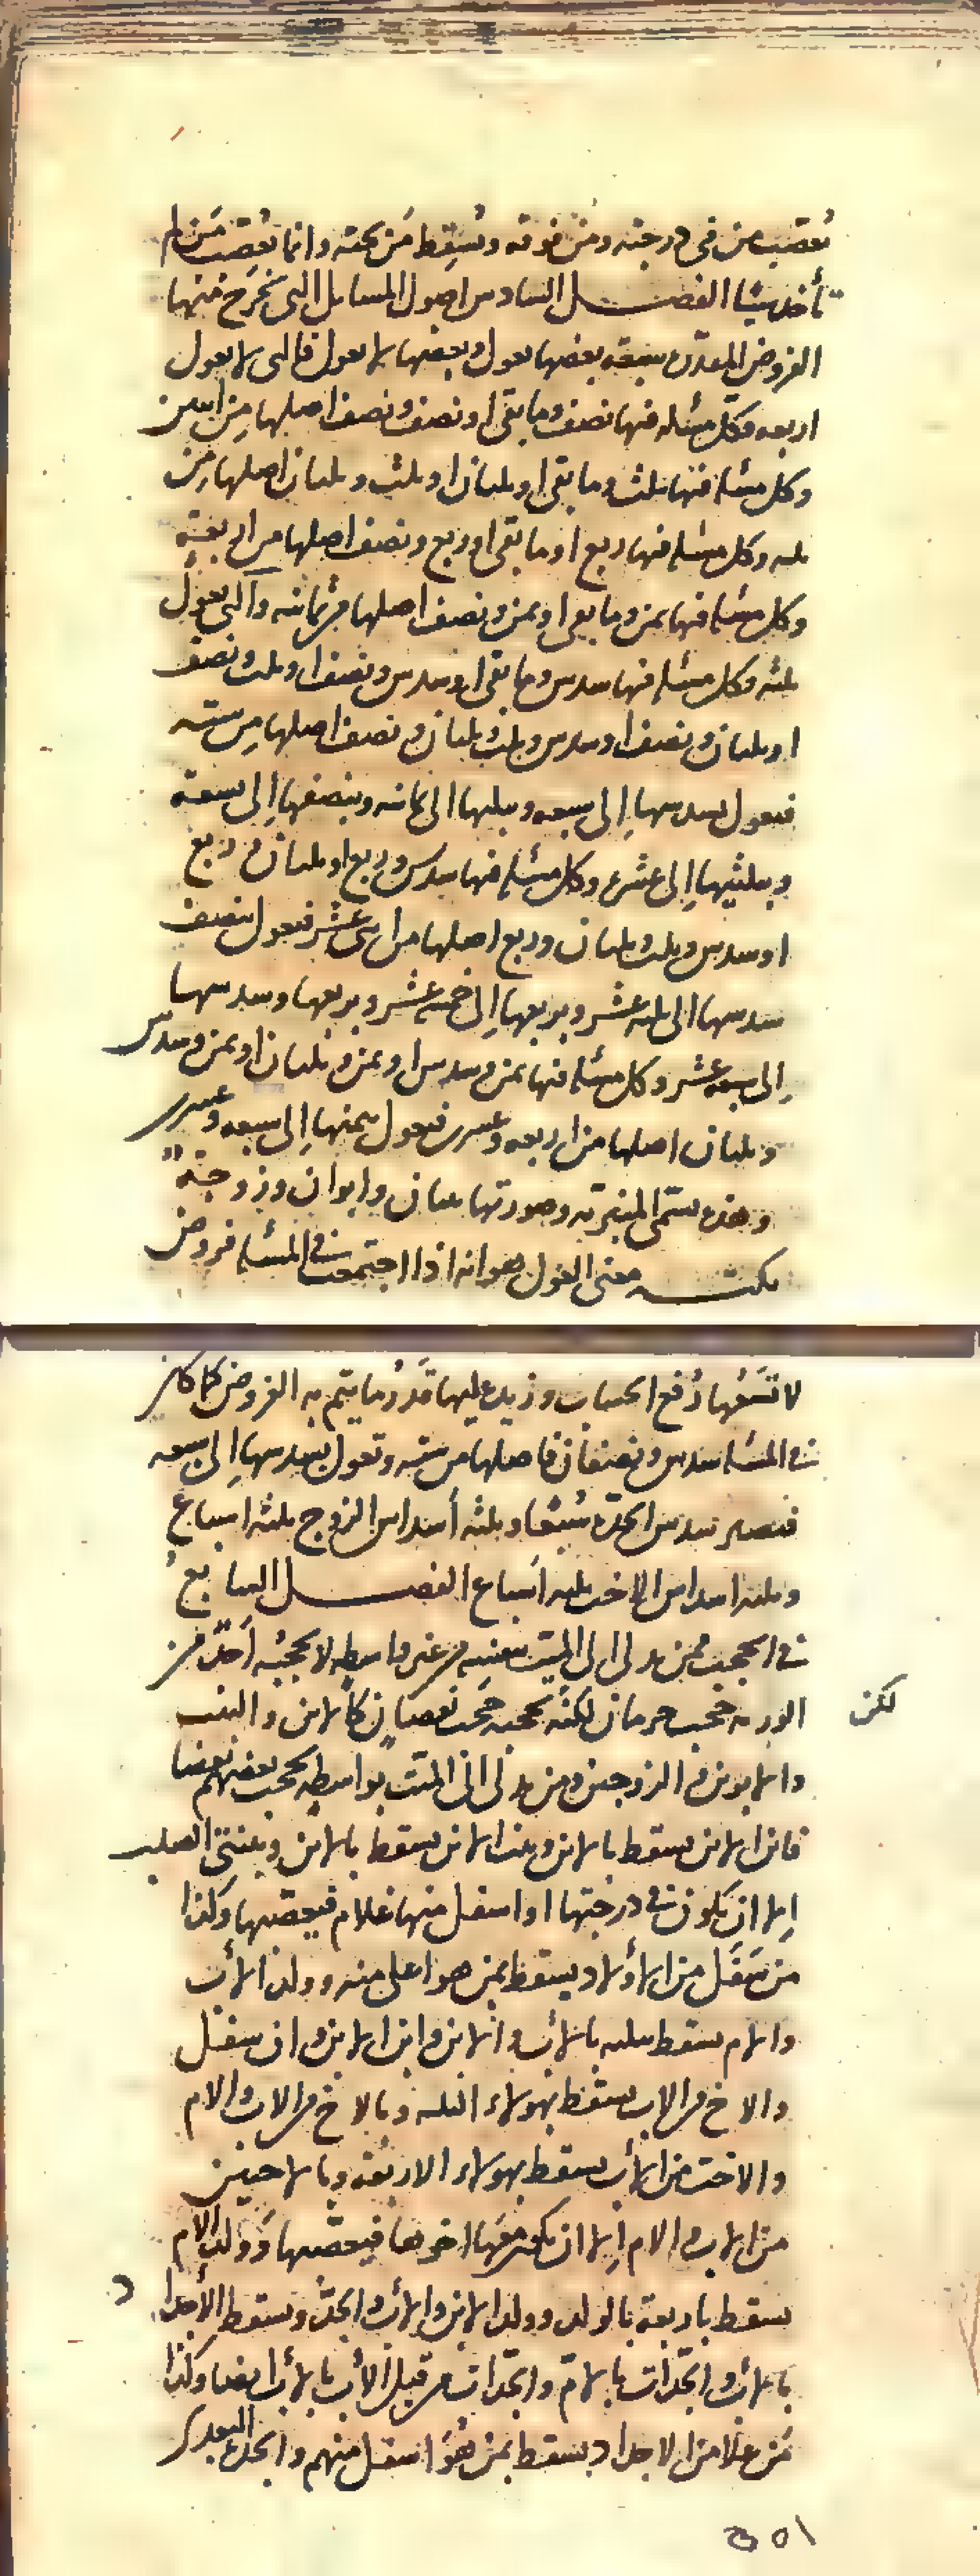 يُعَصّب من في درجته ومَن فوقه ويُسقِط مَن تحته وانما يُعَصّب مَن لم
تأخذ شيئا الفصل السادس اصول المسايل التى تخرج منها
الفروض المقدرة سبعة بعضها يعول وبعضها لا يعول فالتى لا يعول
اربعه فكل مسئله فيها نصف وما بقى او نصف ونصف اصلها مِن اثنين
وكل مسئلة فيها ثلث وما بقى او ثلثان او ثلث وثلثان اصلها مِن
ثلثه وكل مسئلة فيها ربع او ما بقى او ربع ونصف اصلها من اربعة
وكل مسئلة فيها ثمن وما بقى او ثمن ونصف اصلها من ثمانيه والتى يعول
ثلثه فكل مسئلة فيها سدس وما بقى او سدس ونصف او ثلث ونصف
او ثلثان ونصف او سدس وثلث وثلثان ونصف اصلها مِن سته
فيعول بسدسها اِلى سبعه وبثلثها الى ثمانيه وبنصفها اِلى تسعة
وبثلثيها اِلى عشرة وكل مسئلة فيها سدس وربع او ثلثان وربع
او سدس وثلث وثلثان وربع اصلها من اثنى عشر فيعول بنصف
سدسها الى ثلثه عشر وبربعها اِلى خمسة عشر وبربعها وسدسها
اِلى سبعه عشر وكل مسئلة فيها ثمن وسدس او ثمن وثلثان او ثمن وسدس
وثلثان اصلها من اربعه وعشرين فيعول بثمنها اِلى سبعه وعشرين
وهذه تسمى المنبرية وصورتها بنتان وابوان وزوجة
نكتة معنى العول هو انه اذا اجتمعت فى المسئلة فروض
لا تسَعُها رُفع الحساب وزيد عليها قَدَرُ ما يتم به الفروض كما كان
فى المسئلة سدس ونصفان فاصلها من سته وتعول بسدسها اِلى سبعه
فيصير سدس الجدة سُبعًا وثلثه أسداس الزوج ثلثه اسباع
وثلثه اسداس الاخت ثلثه اسباع الفصل السابع
فى الحجب فمن يدلى الى الميت بنفسه من غير واسطه لا يحجبُه احَدٌ من
الورثه حجب حرمان لكنّه يحجبه حَجبَ نقصان كالابن والبنت
لكن
والابوين والزوجين ومن يدلى الى الميت بواسطه يحجب بعضهم بعضا
فابن الابن يسقط بالابن وبنت الابن يسقط بالابن وببنتى الصلب
اِلا ان يكون فى درجتها او اسفل منها غلام فيعصبها وكذا
من سَفَل من الاولاد يسقط بمن هو اعلى منه وولد الأب
والام يسقط بثلثه بالأب والابن وابن الابن وان سفل
والاخ من الاب يسقط بهولاء الثلثه وبالاخ من الاب والام
والاخت من الأب يسقط بهولاء الاربعة وبالاختين
من الاب والام اِلا ان يكون معَها اخوها فيعصّبها وَولد الام
يسقط باربعة بالولد وولد الابن والأب والجدّ ويسقط الأجداد
بالأب والجدّات بالامّ والجدّات من قبل الأب بالأب ايضا وكذا
مَن عَلا من الاجداد يسقط بمن هُوَ اسفل منهم والجدة البعدى